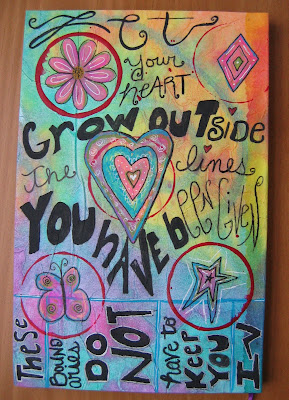 Let
Your
heart
Grow outside
the lines
You have been Given
These
Boundaries
DO
NOT
have to
Keep
You
In